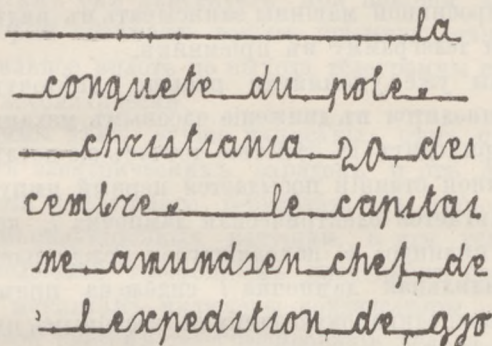 la
conquete du pole.
christiania 20 de
cembre. le capitai
ne amundsen chef de
l expedition de gjo